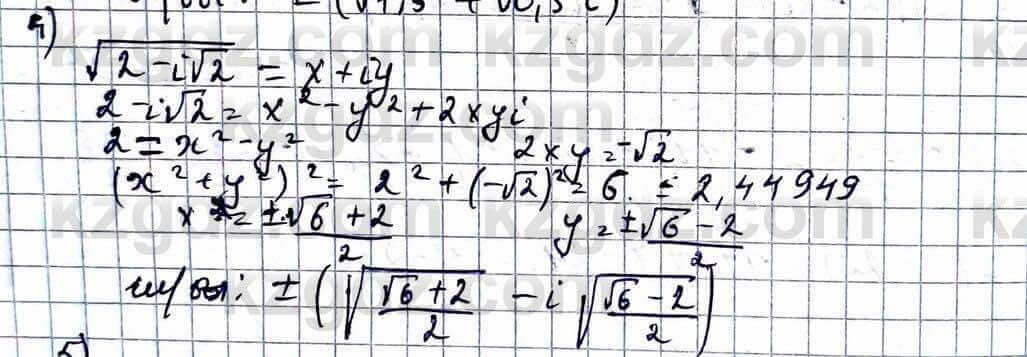 4)
√(2 - i√2) = x + iy
2 - i√2 = x² - y² + 2xyi
2 = x² - y²    2xy = -√2
(x² + y²)² = 2² + (-√2)² = 6 = 2,44949
x = ±√6 + 2 / 2    y = ± √6 - 2 / 2
± (√((√6 + 2)/2) - i √((√6 - 2)/2))
5)
kzgdz.com